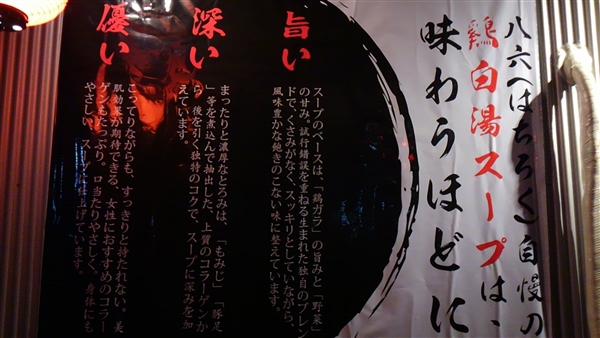 八六(はちろく)自慢の
鶏白湯スープは、
味わうほどに
旨い
スープのベースは、「鶏ガラ」の旨みと「野菜」
の甘み。試行錯誤を重ねる生まれた独自のブレン
ドで、くさみがなく、スッキリとしていながら、
風味豊かな飽きのこない味に整えています。
深い
まったりと濃厚なとろみは、「もみじ」「豚足
」等を煮込んで抽出した、上質のコラーゲンか
ら 後を引く独特のコクで、スープに深みを加
えています。
優い
こってりながらも、すっきりと持たれない。美
肌効果が期待できる、女性におすすめのコラー
ゲンもたっぷり。口当たりやさしく、身体にも
やさしい、スープに仕上げています。